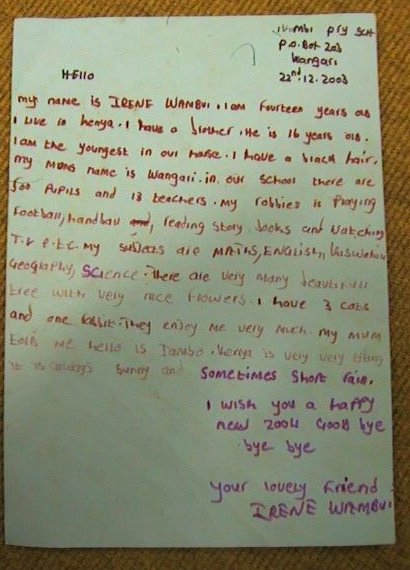 pry sch
P.O. Box 203
Wangari
22nd. 12. 2003
HELLO
my name is IRENE WAMBUI. I am fourteen years old
I live in kenya. I have a brother. He is 16 years old.
I am the youngest in our house. I have a black hair.
my mums name is Wangari. in. our school there are
500 Pupils and 13 teachers. my robbies is Playing
Football, handball and, reading story books and watching
T.V e.t.c. my subjects are MATHS, ENGLISH, kiswahili
Geography, SCIENCE. There are very many beautifull
tree with very nice flowers. I have 3 cats
and one rabbit. They enjoy me very much. my mum
told me hello is Jambo. kenya is very very
it is always sunny and sometimes short rain.
I wish you a happy
new 2004 Good bye
bye bye
your lovely Friend
IRENE WAMBUI